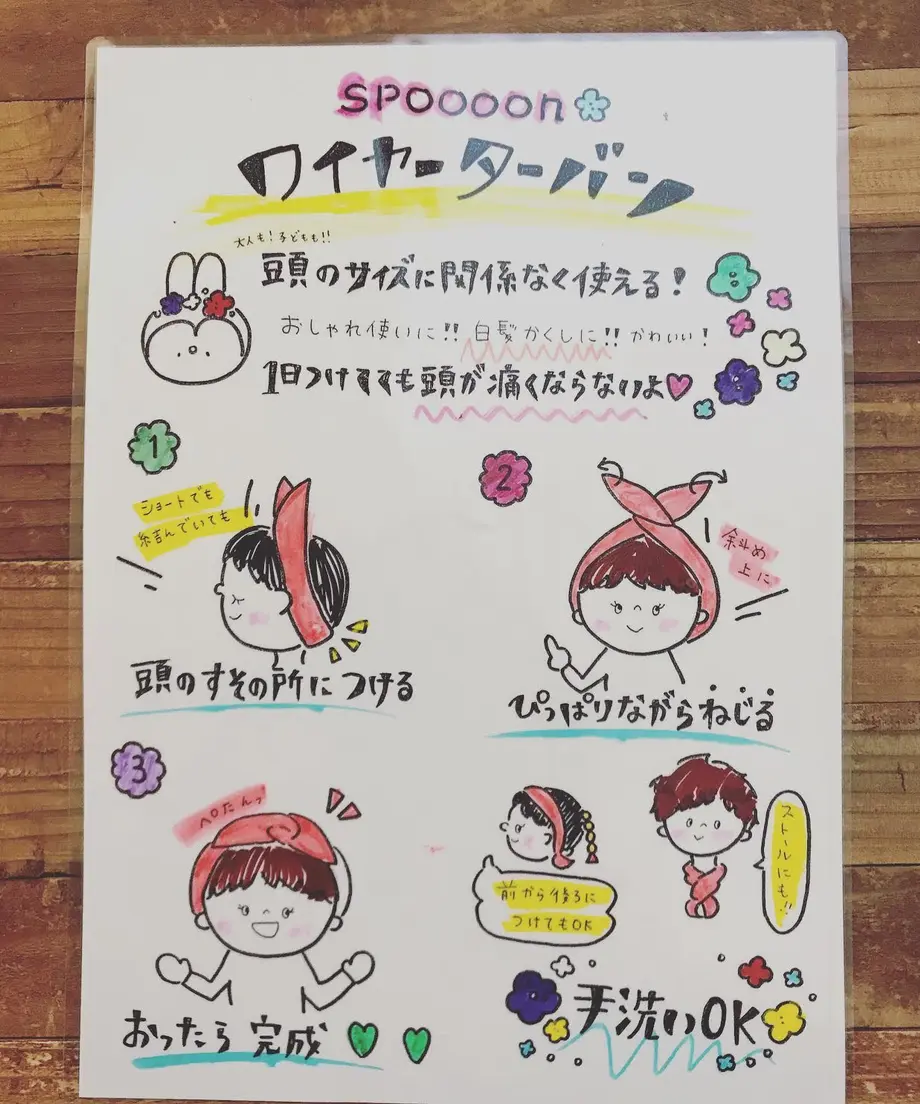 SPOOOOn
ワイヤーターバン
大人も!子どもも!!
頭のサイズに関係なく使える!
おしゃれ使いに!!白髪かくしに!!かわいい!
1日つけてても頭が痛くならないよ
1
ショートでも
結んでいても
頭のすその所につける
2
斜め
上に
ひっぱりながらねじる
3
ペたんっ
おったら完成
前から後ろに
つけてもOK
ストールにも!!
手洗いOK